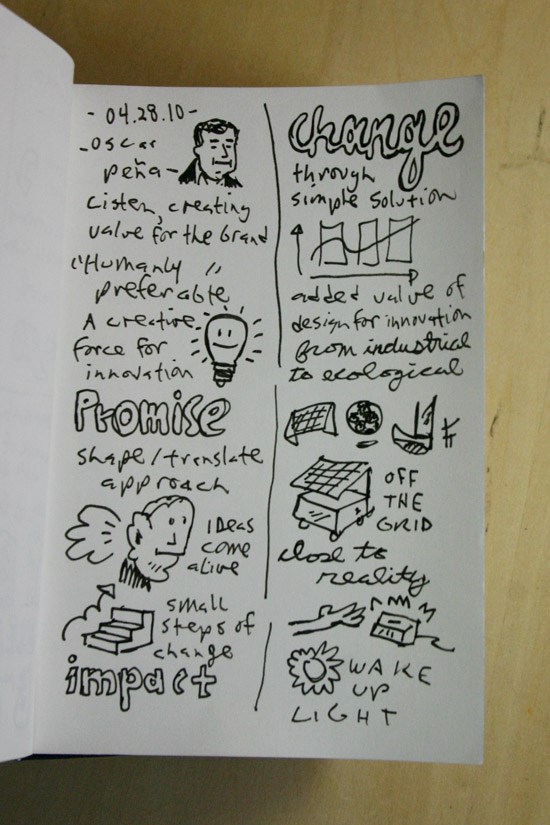 - 04.28.10 -
- oscar
peña -
Listen, creating
value for the brand
"Humanly "
preferable
A creative
force for
innovation
Promise
shape/translate
approach
ideas
come
alive
small
steps of
change
impact
change
through
simple solution
added value of
design for innovation
from industrial
to ecological
OFF
THE
GRID
close to
reality
WAKE
UP
LIGHT